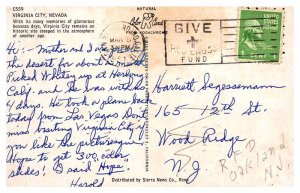 C559
VIRGINIA CITY, NEVADA
With its many memories of glamorous
bonanza days, Virginia City remains an
historic site steeped in the atmosphere
of another
NATURAL
FROM KODACHROME
GIVE
RED CROSS
FUND
Hi: - Motor and I are
the desert for about a month
Picked Whitey up at
Calif. and he was with us
4 days. He took a plane back
today from Las Vegas. Don't
miss visiting Virginia City if
you like the picturesque.
Hope to get 300,
slides! I said Hope.
Harold
Harriett
165 - 12th St.
Wood Ridge
N.J.
Distributed by Sierra News Co., Reno